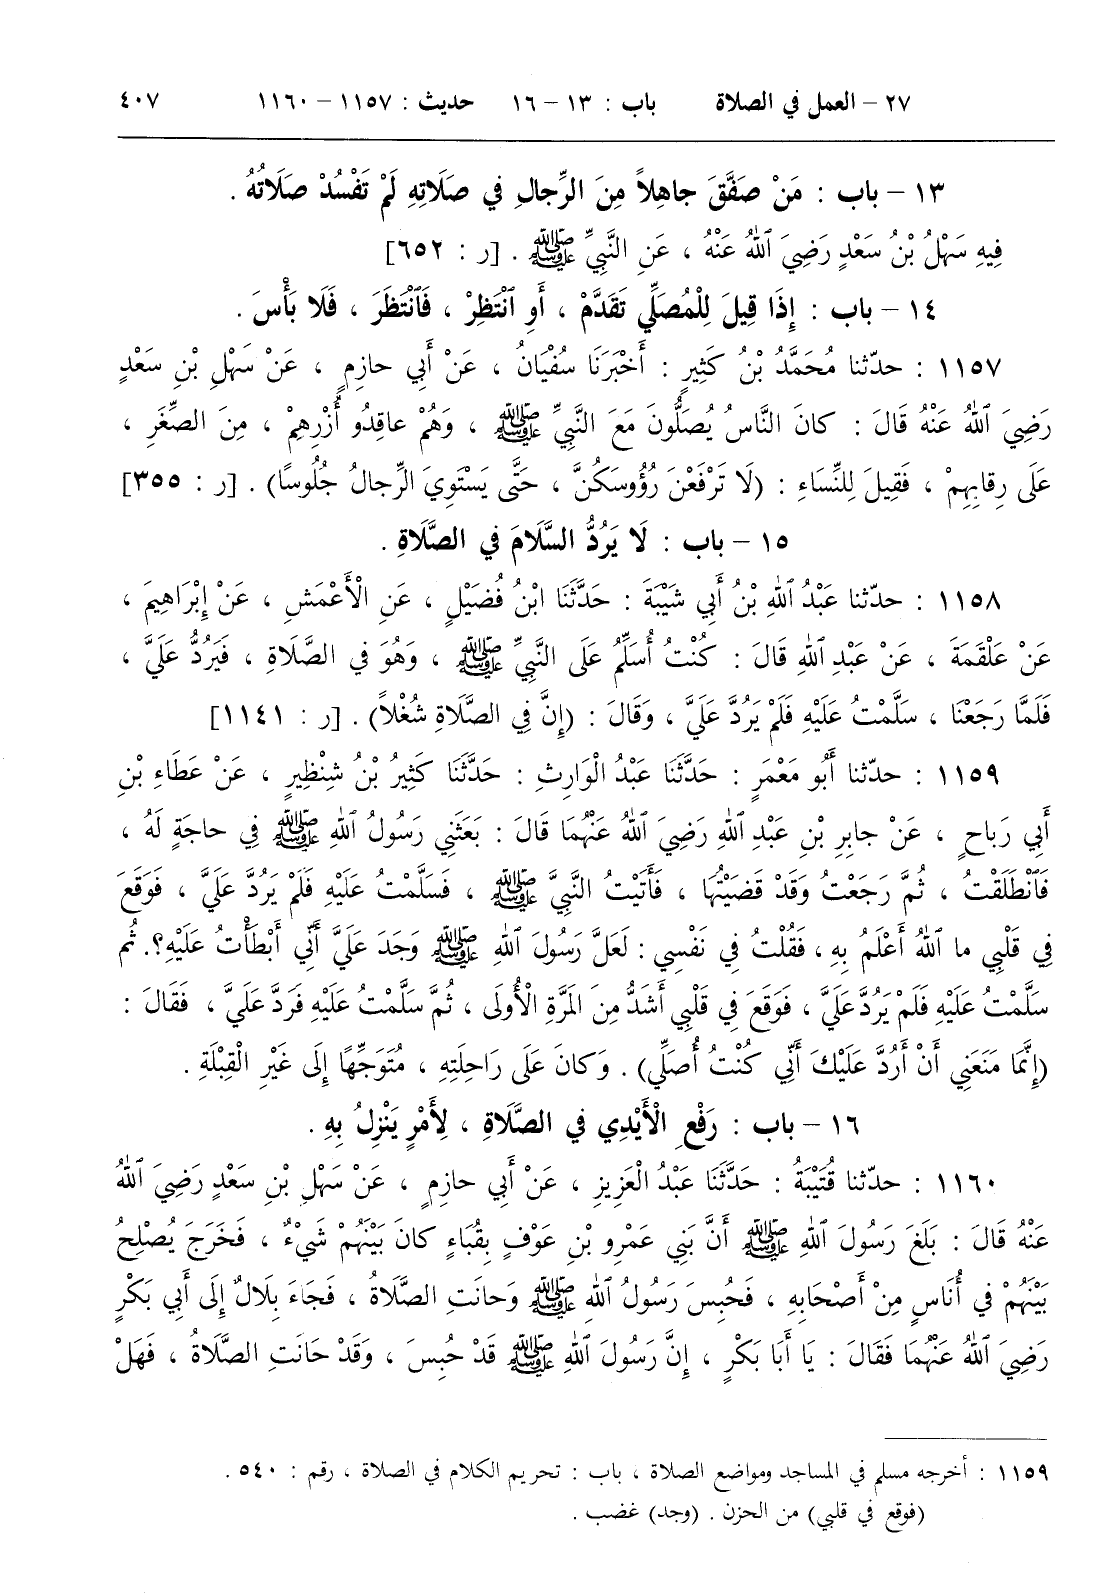 ٢٧ – العمل في الصلاة باب : ١٣ – ١٦ حديث : ١١٥٧ – ١١٦٠ ٤٠٧
١٣ – باب : مَنْ صَفَّقَ جاهِلاً مِنَ الرِّجالِ في صَلَاتِهِ لَمْ تَفْسُدْ صَلَاتُهُ .
فِيهِ سَهْلُ بْنُ سَعْدٍ رَضِيَ ٱللهُ عَنْهُ ، عَنِ النَّبِيِّ ﷺ . [ر : ٦٥٢]
١٤ – باب : إِذَا قِيلَ لِلْمُصَلِّي تَقَدَّمْ ، أَوِ ٱنْتَظِرْ ، فَٱنْتَظَرَ ، فَلَا بَأْسَ .
١١٥٧ : حدّثنا مُحَمَّدُ بْنُ كَثِيرٍ : أَخْبَرَنَا سُفْيَانُ ، عَنْ أَبِي حازِمٍ ، عَنْ سَهْلِ بْنِ سَعْدٍ
رَضِيَ ٱللهُ عَنْهُ قَالَ : كانَ النَّاسُ يُصَلُّونَ مَعَ النَّبِيِّ ﷺ ، وَهُمْ عاقِدُو أُزْرِهِمْ ، مِنَ الصِّغَرِ ،
عَلَى رِقابِهِمْ ، فَقِيلَ لِلنِّسَاءِ : (لَا تَرْفَعْنَ رُؤُوسَكُنَّ ، حَتَّى يَسْتَوِيَ الرِّجالُ جُلُوسًا) . [ر : ٣٥٥]
١٥ – باب : لَا يَرُدُّ السَّلَامَ في الصَّلَاةِ .
١١٥٨ : حدّثنا عَبْدُ ٱللهِ بْنُ أَبِي شَيْبَةَ : حَدَّثَنَا ابْنُ فُضَيْلٍ ، عَنِ الْأَعْمَشِ ، عَنْ إِبْرَاهِيمَ ،
عَنْ عَلْقَمَةَ ، عَنْ عَبْدِ ٱللهِ قَالَ : كُنْتُ أُسَلِّمُ عَلَى النَّبِيِّ ﷺ ، وَهُوَ في الصَّلَاةِ ، فَيَرُدُّ عَلَيَّ ،
فَلَمَّا رَجَعْنَا ، سَلَّمْتُ عَلَيْهِ فَلَمْ يَرُدَّ عَلَيَّ ، وَقَالَ : (إِنَّ فِي الصَّلَاةِ شُغْلاً) . [ر : ١١٤١]
١١٥٩ : حدّثنا أَبُو مَعْمَرٍ : حَدَّثَنَا عَبْدُ الْوَارِثِ : حَدَّثَنَا كَثِيرُ بْنُ شِنْظِيرٍ ، عَنْ عَطَاءِ بْنِ
أَبِي رَباحٍ ، عَنْ جابِرِ بْنِ عَبْدِ ٱللهِ رَضِيَ ٱللهُ عَنْهُمَا قَالَ : بَعَثَنِي رَسُولُ ٱللهِ ﷺ فِي حاجَةٍ لَهُ ،
فَٱنْطَلَقْتُ ، ثُمَّ رَجَعْتُ وَقَدْ قَضَيْتُهَا ، فَأَتَيْتُ النَّبِيَّ ﷺ ، فَسَلَّمْتُ عَلَيْهِ فَلَمْ يَرُدَّ عَلَيَّ ، فَوَقَعَ
فِي قَلْبِي ما ٱللهُ أَعْلَمُ بِهِ ، فَقُلْتُ فِي نَفْسِي : لَعَلَّ رَسُولَ ٱللهِ ﷺ وَجَدَ عَلَيَّ أَنِّي أَبْطَأْتُ عَلَيْهِ؟. ثُم
سَلَّمْتُ عَلَيْهِ فَلَمْ يَرُدَّ عَلَيَّ ، فَوَقَعَ فِي قَلْبِي أَشَدُّ مِنَ المَرَّةِ الْأُولَى ، ثُمَّ سَلَّمْتُ عَلَيْهِ فَرَدَّ عَلَيَّ ، فَقَالَ :
(إِنَّمَا مَنَعَنِي أَنْ أَرُدَّ عَلَيْكَ أَنِّي كُنْتُ أُصَلِّي) . وَكانَ عَلَى رَاحِلَتِهِ ، مُتَوَجِّهًا إِلَى غَيْرِ الْقِبْلَةِ .
١٦ – باب : رَفْعِ الْأَيْدِي في الصَّلَاةِ ، لِأَمْرٍ يَنْزِلُ بِهِ .
١١٦٠ : حدّثنا قُتَيْبَةُ : حَدَّثَنَا عَبْدُ الْعَزِيزِ ، عَنْ أَبِي حازِمٍ ، عَنْ سَهْلِ بْنِ سَعْدٍ رَضِيَ ٱللهُ
عَنْهُ قَالَ : بَلَغَ رَسُولَ ٱللهِ ﷺ أَنَّ بَنِي عَمْرِو بْنِ عَوْفٍ بِقُبَاءٍ كانَ بَيْنَهُمْ شَيْءٌ ، فَخَرَجَ يُصْلِحُ
بَيْنَهُمْ في أُنَاسٍ مِنْ أَصْحَابِهِ ، فَحُبِسَ رَسُولُ ٱللهِ ﷺ وَحانَتِ الصَّلَاةُ ، فَجَاءَ بِلَالٌ إِلَى أَبِي بَكْرٍ
رَضِيَ ٱللهُ عَنْهُمَا فَقَالَ : يَا أَبَا بَكْرٍ ، إِنَّ رَسُولَ ٱللهِ ﷺ قَدْ حُبِسَ ، وَقَدْ حَانَتِ الصَّلَاةُ ، فَهَلْ
١١٥٩ : أخرجه مسلم في المساجد ومواضع الصلاة ، باب : تحريم الكلام في الصلاة ، رقم : ٥٤٠ .
(فوقع في قلبي) من الحزن . (وجد) غضب .